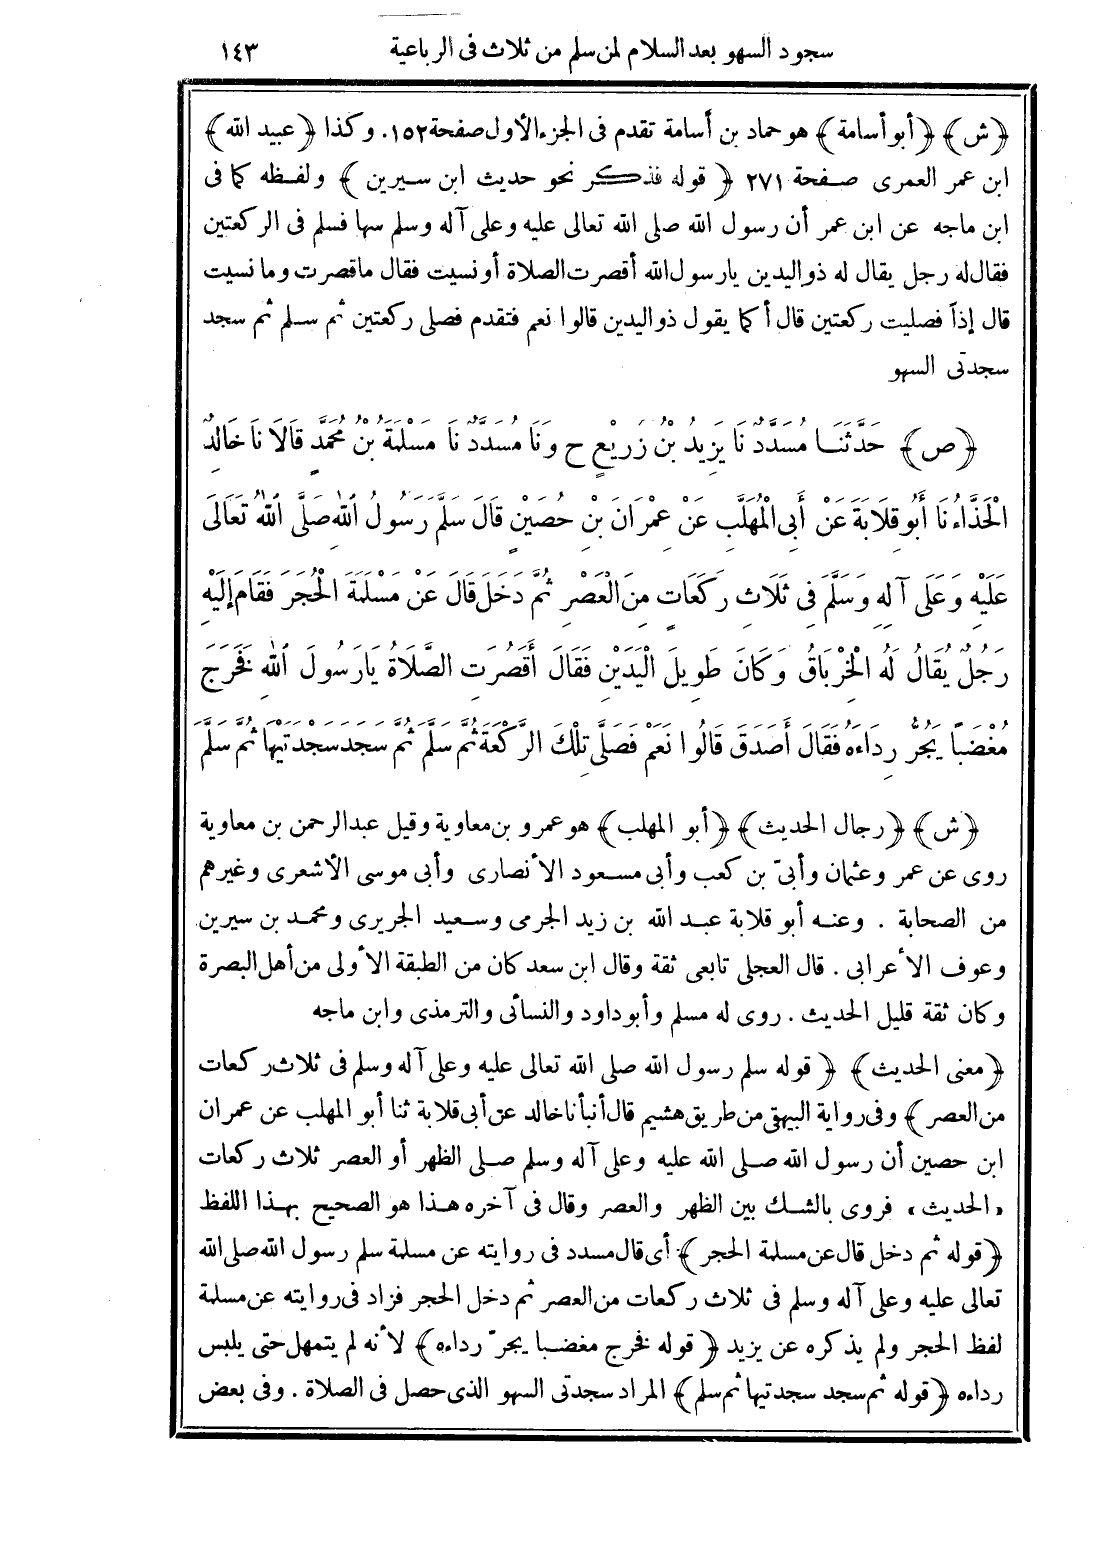 سجود السهو بعد السلام لمن سلم من ثلاث فى الرباعية ١٤٣
﴿ش﴾ ﴿أبو أسامة﴾ هو حماد بن أسامة تقدم فى الجزء الأول صفحة ١٥٢. وكذا ﴿عبيد الله﴾
ابن عمر العمرى صفحة ٢٧١ ﴿قوله فذكر نحو حديث ابن سيرين﴾ ولفظه كما فى
ابن ماجه عن ابن عمر أن رسول الله صلى الله تعالى عليه وعلى آله وسلم سها فسلم فى الركعتين
فقال له رجل يقال له ذو اليدين يارسول الله أقصرت الصلاة أو نسيت فقال ماقصرت وما نسيت
قال إذاً فصليت ركعتين قال أكما يقول ذو اليدين قالوا نعم فتقدم فصلى ركعتين ثم سلم ثم سجد
سجدتى السهو
﴿ص﴾ حَدَّثَنَا مُسَدَّدٌ نَا يَزِيدُ بْنُ زُرَيْعٍ ح وَنَا مُسَدَّدٌ نَا مَسْلَمَةُ بْنُ مُحَمَّدٍ قَالَا نَا خَالِدٌ
الْحَذَّاءُ نَا أَبُو قِلَابَةَ عَنْ أَبِى الْمُهَلَّبِ عَنْ عِمْرَانَ بْنِ حُصَيْنٍ قَالَ سَلَّمَ رَسُولُ اللهِ صَلَّى اللهُ تَعَالَى
عَلَيْهِ وَعَلَى آلِهِ وَسَلَّمَ فِى ثَلَاثِ رَكَعَاتٍ مِنَ الْعَصْرِ ثُمَّ دَخَلَ قَالَ عَنْ مَسْلَمَةَ الْحُجَرَ فَقَامَ إِلَيْهِ
رَجُلٌ يُقَالُ لَهُ الْخِرْبَاقُ وَكَانَ طَوِيلَ الْيَدَيْنِ فَقَالَ أَقَصُرَتِ الصَّلَاةُ يَارَسُولَ اللهِ فَخَرَجَ
مُغْضَبًا يَجُرُّ رِدَاءَهُ فَقَالَ أَصَدَقَ قَالُوا نَعَمْ فَصَلَّى تِلْكَ الرَّكْعَةَ ثُمَّ سَلَّمَ ثُمَّ سَجَدَ سَجْدَتَيْهَا ثُمَّ سَلَّمَ
﴿ش﴾ ﴿رجال الحديث﴾ ﴿أبو المهلب﴾ هو عمرو بن معاوية وقيل عبدالرحمن بن معاوية
روى عن عمر وعثمان وأبىّ بن كعب وأبى مسعود الأنصارى وأبى موسى الأشعرى وغيرهم
من الصحابة . وعنه أبو قلابة عبد الله بن زيد الجرمى وسعيد الجريرى ومحمد بن سيرين
وعوف الأعرابى . قال العجلى تابعى ثقة وقال ابن سعد كان من الطبقة الأولى من أهل البصرة
وكان ثقة قليل الحديث . روى له مسلم وأبو داود والنسائى والترمذى وابن ماجه
﴿معنى الحديث﴾ ﴿قوله سلم رسول الله صلى الله تعالى عليه وعلى آله وسلم فى ثلاث ركعات
من العصر﴾ وفى رواية البيهقى من طريق هشيم قال أنبأنا خالد عن أبى قلابة ثنا أبو المهلب عن عمران
ابن حصين أن رسول الله صلى الله عليه وعلى آله وسلم صلى الظهر أو العصر ثلاث ركعات
«الحديث» فروى بالشك بين الظهر والعصر وقال فى آخره هذا هو الصحيح بهذا اللفظ
﴿قوله ثم دخل قال عن مسلمة الحجر﴾ أى قال مسدد فى روايته عن مسلمة سلم رسول الله صلى الله
تعالى عليه وعلى آله وسلم فى ثلاث ركعات من العصر ثم دخل الحجر فزاد فى روايته عن مسلمة
لفظ الحجر ولم يذكره عن يزيد ﴿قوله فخرج مغضبا يجرّ رداءه﴾ لأنه لم يتمهل حتى يلبس
رداءه ﴿قوله ثم سجد سجدتيها ثم سلم﴾ المراد سجدتى السهو الذى حصل فى الصلاة . وفى بعض